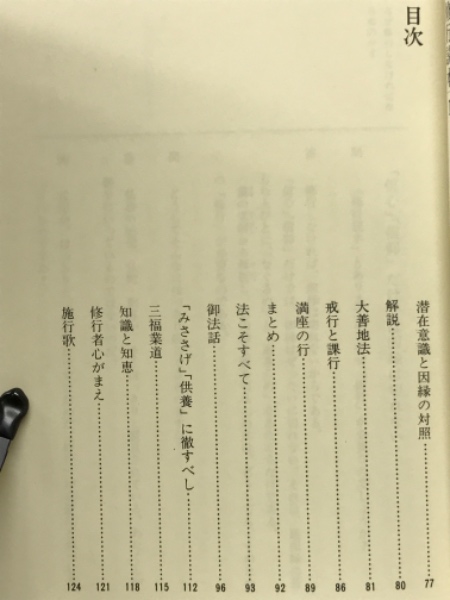 目次
潜在意識と因縁の対照……77
解説……80
大善地法……81
戒行と課行……86
満座の行……89
まとめ……92
法こそすべて……93
御法話……96
「みささげ」「供養」に徹すべし……112
三福業道……115
知識と知恵……118
修行者心がまえ……121
施行歌……124